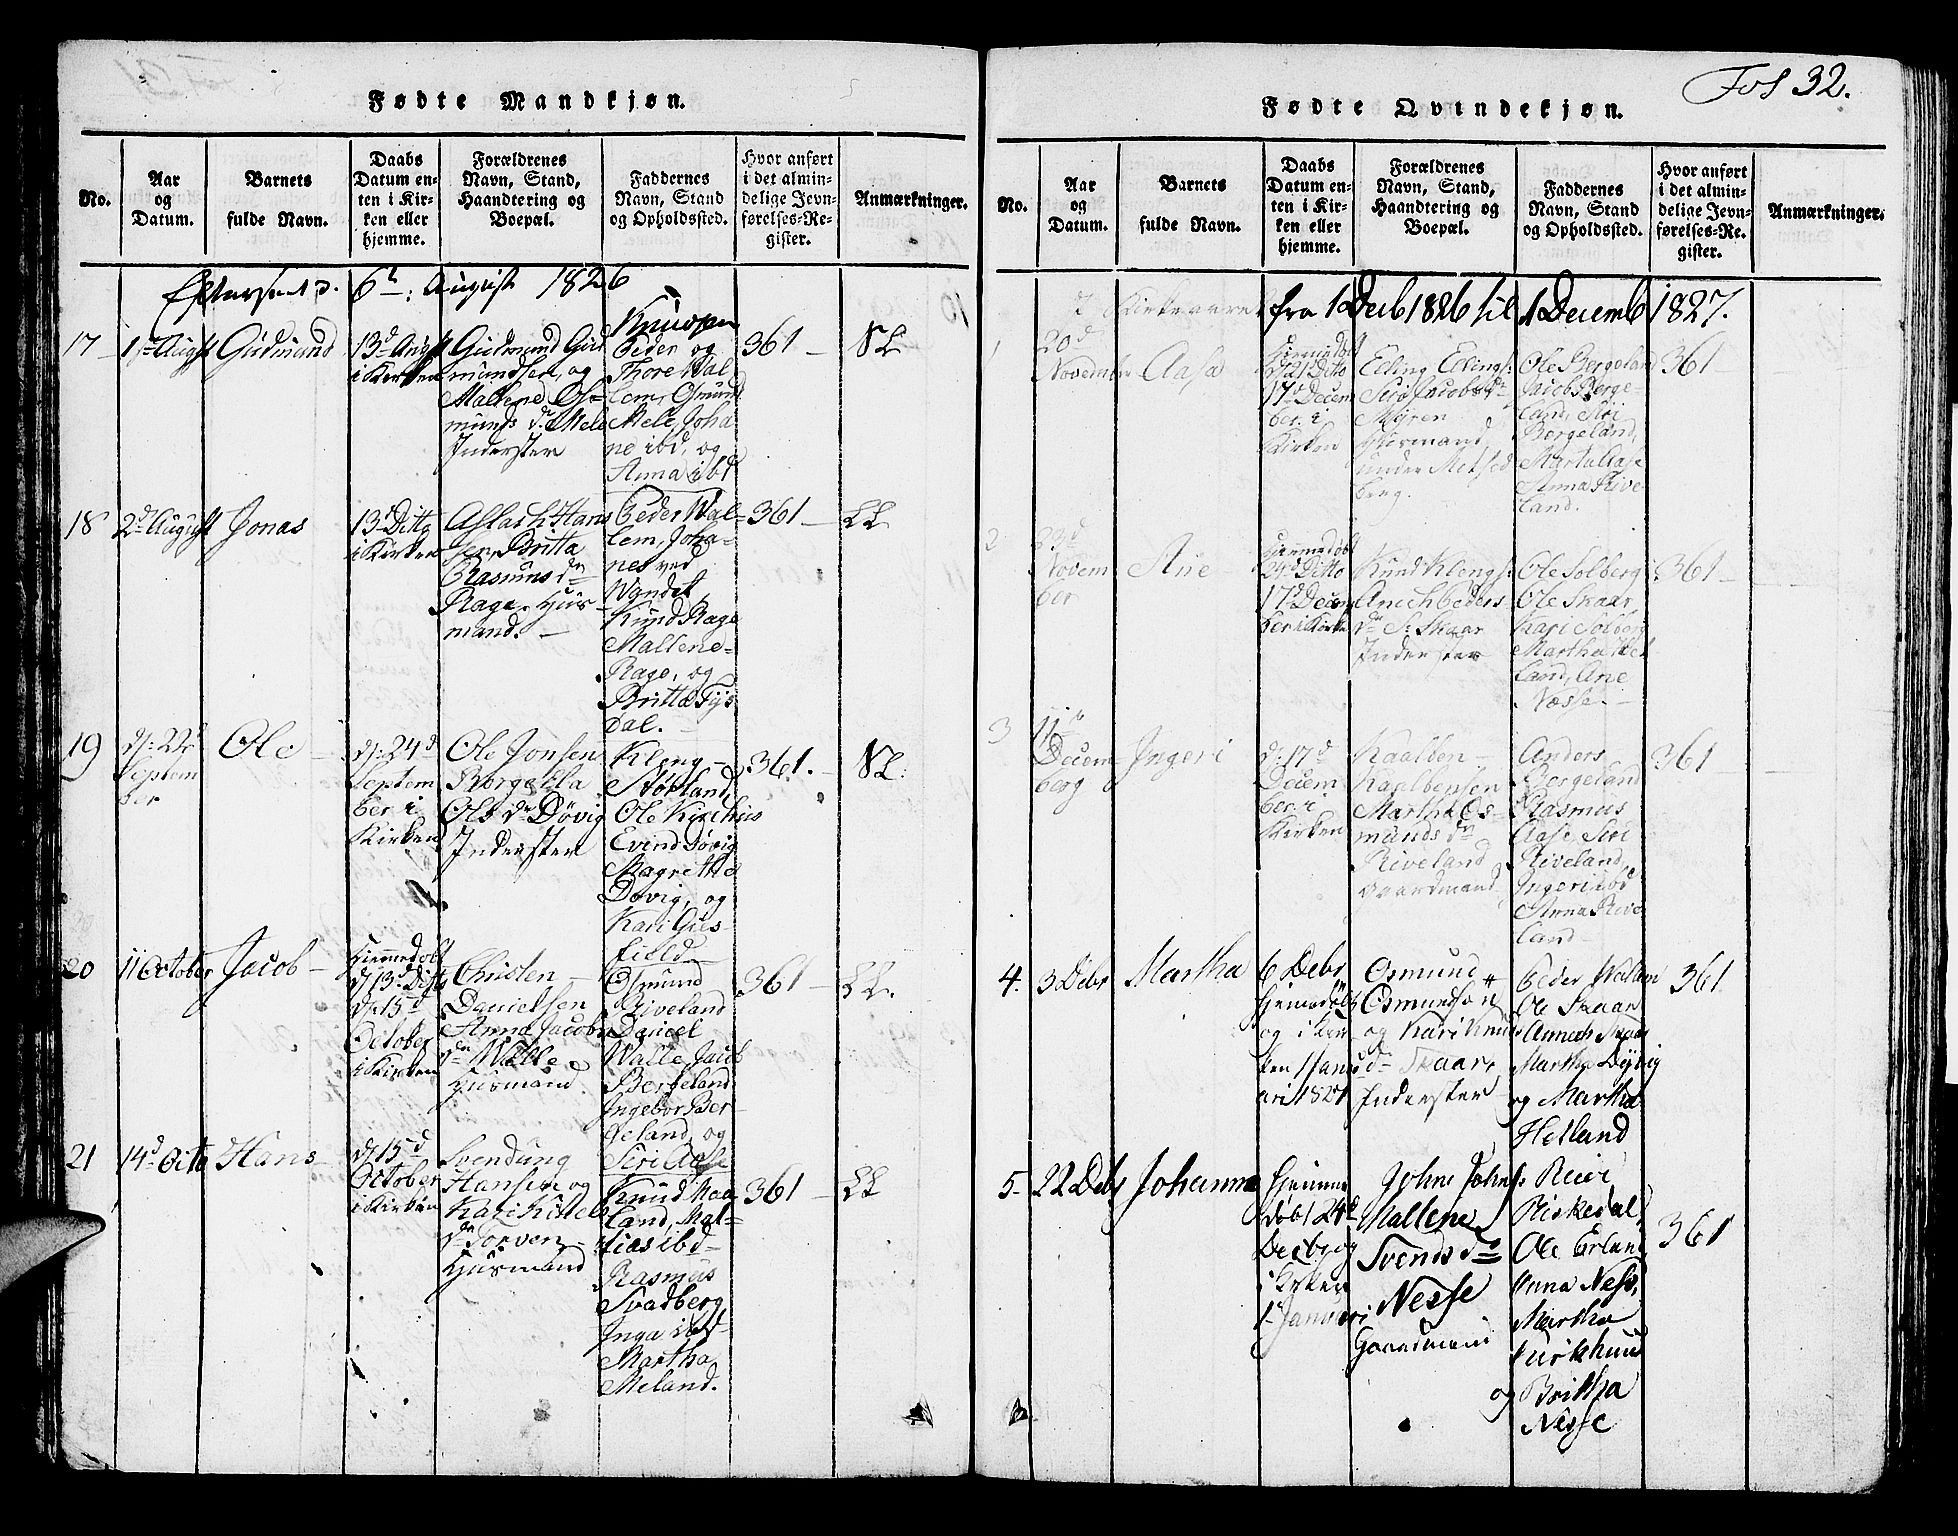 Fødte Mandkjøn.
No.
Aar
og
Datum.
Barnets
fulde Navn.
Daabs
Datum en-
ten i Kir-
ken eller
hjemme.
Forældrenes
Navn, Stand,
Haandtering og
Boepæl.
Faddernes
Navn, Stand
og Opholdssted.
Hvor anført
i det almin-
delige Jevn-
førelses-Re-
gister.
Anmærkninger.
6te August 1826
17
1ste August
Gudmund
13d August
i Kirken
Gudmund Gud
mundsen, og
Mallene Os-
munds dn Mele
Inderster
Knudsen
Peder og
Thore Wal
lem, Osmund
Mele, Joha
ne ibd, og
Anna ibd
361
18
2d August
Jonas
13d Ditto
i Kirken
Aslach Hans
sen, Britta
Rasmus dn
Rage. Huus
mand.
Peder Wal-
lem, Joha-
nes ved
Vandet
Knud Rage
Mallene
Rage, og
Britta Tys
dal.
361
19
d: 22d
Septem
ber
Ole
d: 24d
Septem
ber i
Kirken
Ole Jonsen
Borge Ela
Ols dn Døvig
Inderster
Kleng
Størland,
Ole Kirkhus
Evind Døvig
Magrethe
Døvig, og
Kari Gils
field
361.
20
11 October
Jacob
Hiemmedøbt
d 13d Ditto
d 15d
October
i Kirken
Christen
Danielsen
Anna Jacobs
dn Walle
Huusmand
Osmund
Riveland
Daniel
Walle, Jacob
Bergeland
Ingebor Ber
geland, og
Siri Aase
361
21
14d Octo
Hans
d 15d
October
i Kirken
Svendung
Hansen og
Kari Kittels
dn Torven
Huusmand
Knud Maa
land, Mat-
tias ibd
Rasmus
Svadberg
Inga ibd
Martha
Meland.
361
Fol 32.
Fødte Qvindekjøn.
No.
Aar
og
Datum.
Barnets
fulde Navn.
Daabs
Datum en-
ten i Kir-
ken eller
hjemme.
Forældrenes
Navn, Stand,
Haandtering og
Boepæl.
Faddernes
Navn, Stand
og Opholdssted.
Hvor anført
i det almin-
delige Jevn-
førelses-Re-
gister.
Anmærkninger.
i Kirkeaaret fra 1 Decb 1826 til 1 Decemb 1827.
1
20d
November
Aasa
Hiemmedøbt
d 21 Ditto
17d Decem
ber i
Kirken
Elling Ellings:
Siri Jacobs dn
Myren
Huusmand
under Metsed
berg.
Ole Bergeland
Jacob Berge-
land, Siri
Bergeland,
Marta Aase
Anna Rive
land.
361
2
23d
Novem
ber
Ane
Hiemmedøbt
24d Ditto
17d Decem
ber i Kirken
Knud Klengs:
Anech Peders
dn S: Skaar
Inderster
Ole Solberg
Ole Skaar,
Kari Solberg
Martha Hel
land, Ane
Næsse.
361
3
11te
Decem
berg
Ingeri
d: 17d
Decem
ber i
Kirken
Kaalben
Kaalbensen
Martha Os-
munds dn
Riveland
Gaardmand
Anders
Bergeland
Rasmus
Aase, Siri
Riveland,
Ingeri ibd
Anna Rive
land
361
4.
3 Debr
Martha
6 Debr
hjemedøbt
og i Kir
ken 1 Janu
ari 1827
Osmund
Osmundsen
og Kari Knuds
dn Skaar,
Inderster
Peder Wallem
Ole Skaar
Annech Skaar
Martha Døyvig
og Martha
Helland
361
5.
22 Debr
Johanna
hjemme
døbt 24d
Decb og
i Kirken
1 Januari
John Johns:
Mallene
Svends dn
Nesse
Gaardmand
Reier
Riskedal,
Ole Erland
Anna Nesse,
Martha
Kirkhuus
og Britha
Nesse
361